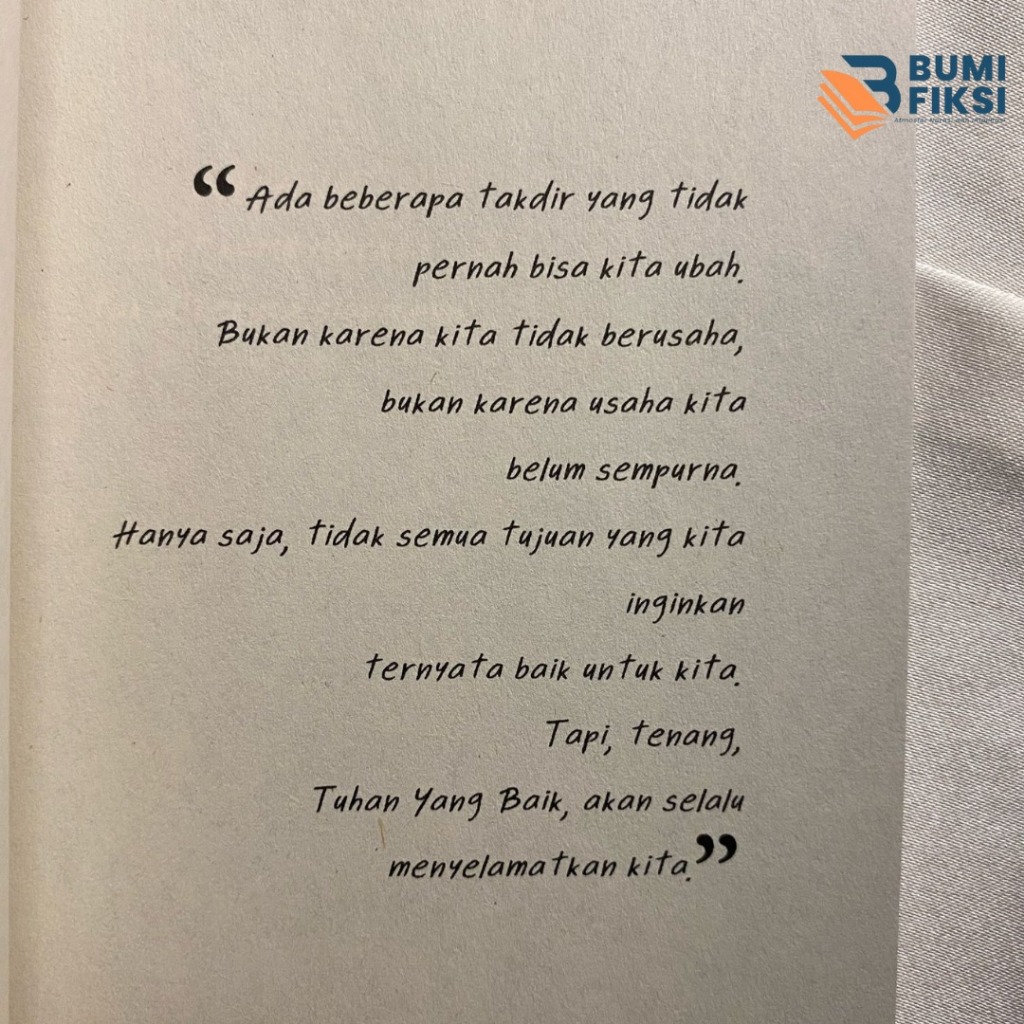 BUMI
FIKSI
“Ada beberapa takdir yang tidak
pernah bisa kita ubah.
Bukan karena kita tidak berusaha,
bukan karena usaha kita
belum sempurna.
Hanya saja, tidak semua tujuan yang kita
inginkan
ternyata baik untuk kita.
Tapi, tenang,
Tuhan Yang Baik, akan selalu
menyelamatkan kita.”